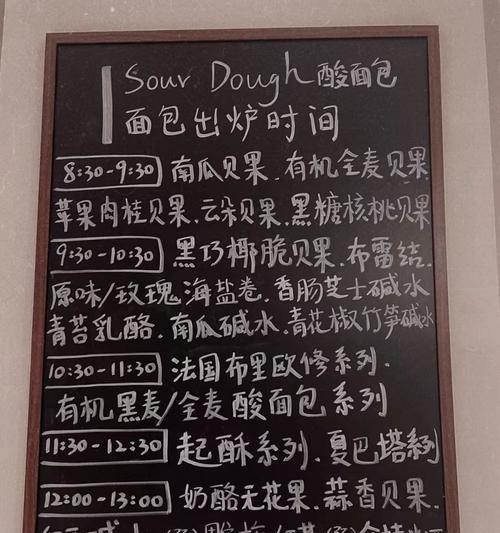 Sour Dough 酸面包
面包出炉时间
8:30-9:30 南瓜贝果.有机全麦贝果
苹果肉桂贝果.云朵贝果.黑糖核桃贝果
9:30-10:30 黑巧椰脆贝果.布雷结.
原味/玫瑰海盐卷.香肠芝士碱水
青苔乳酪.南瓜碱水.青花椒竹笋碱水
10:30-11:30 法国布里欧修系列.
有机黑麦/全麦酸面包系列
11:30-12:30 起酥系列.夏巴塔系列
12:00-13:00 奶酪无花果.蒜香贝果.